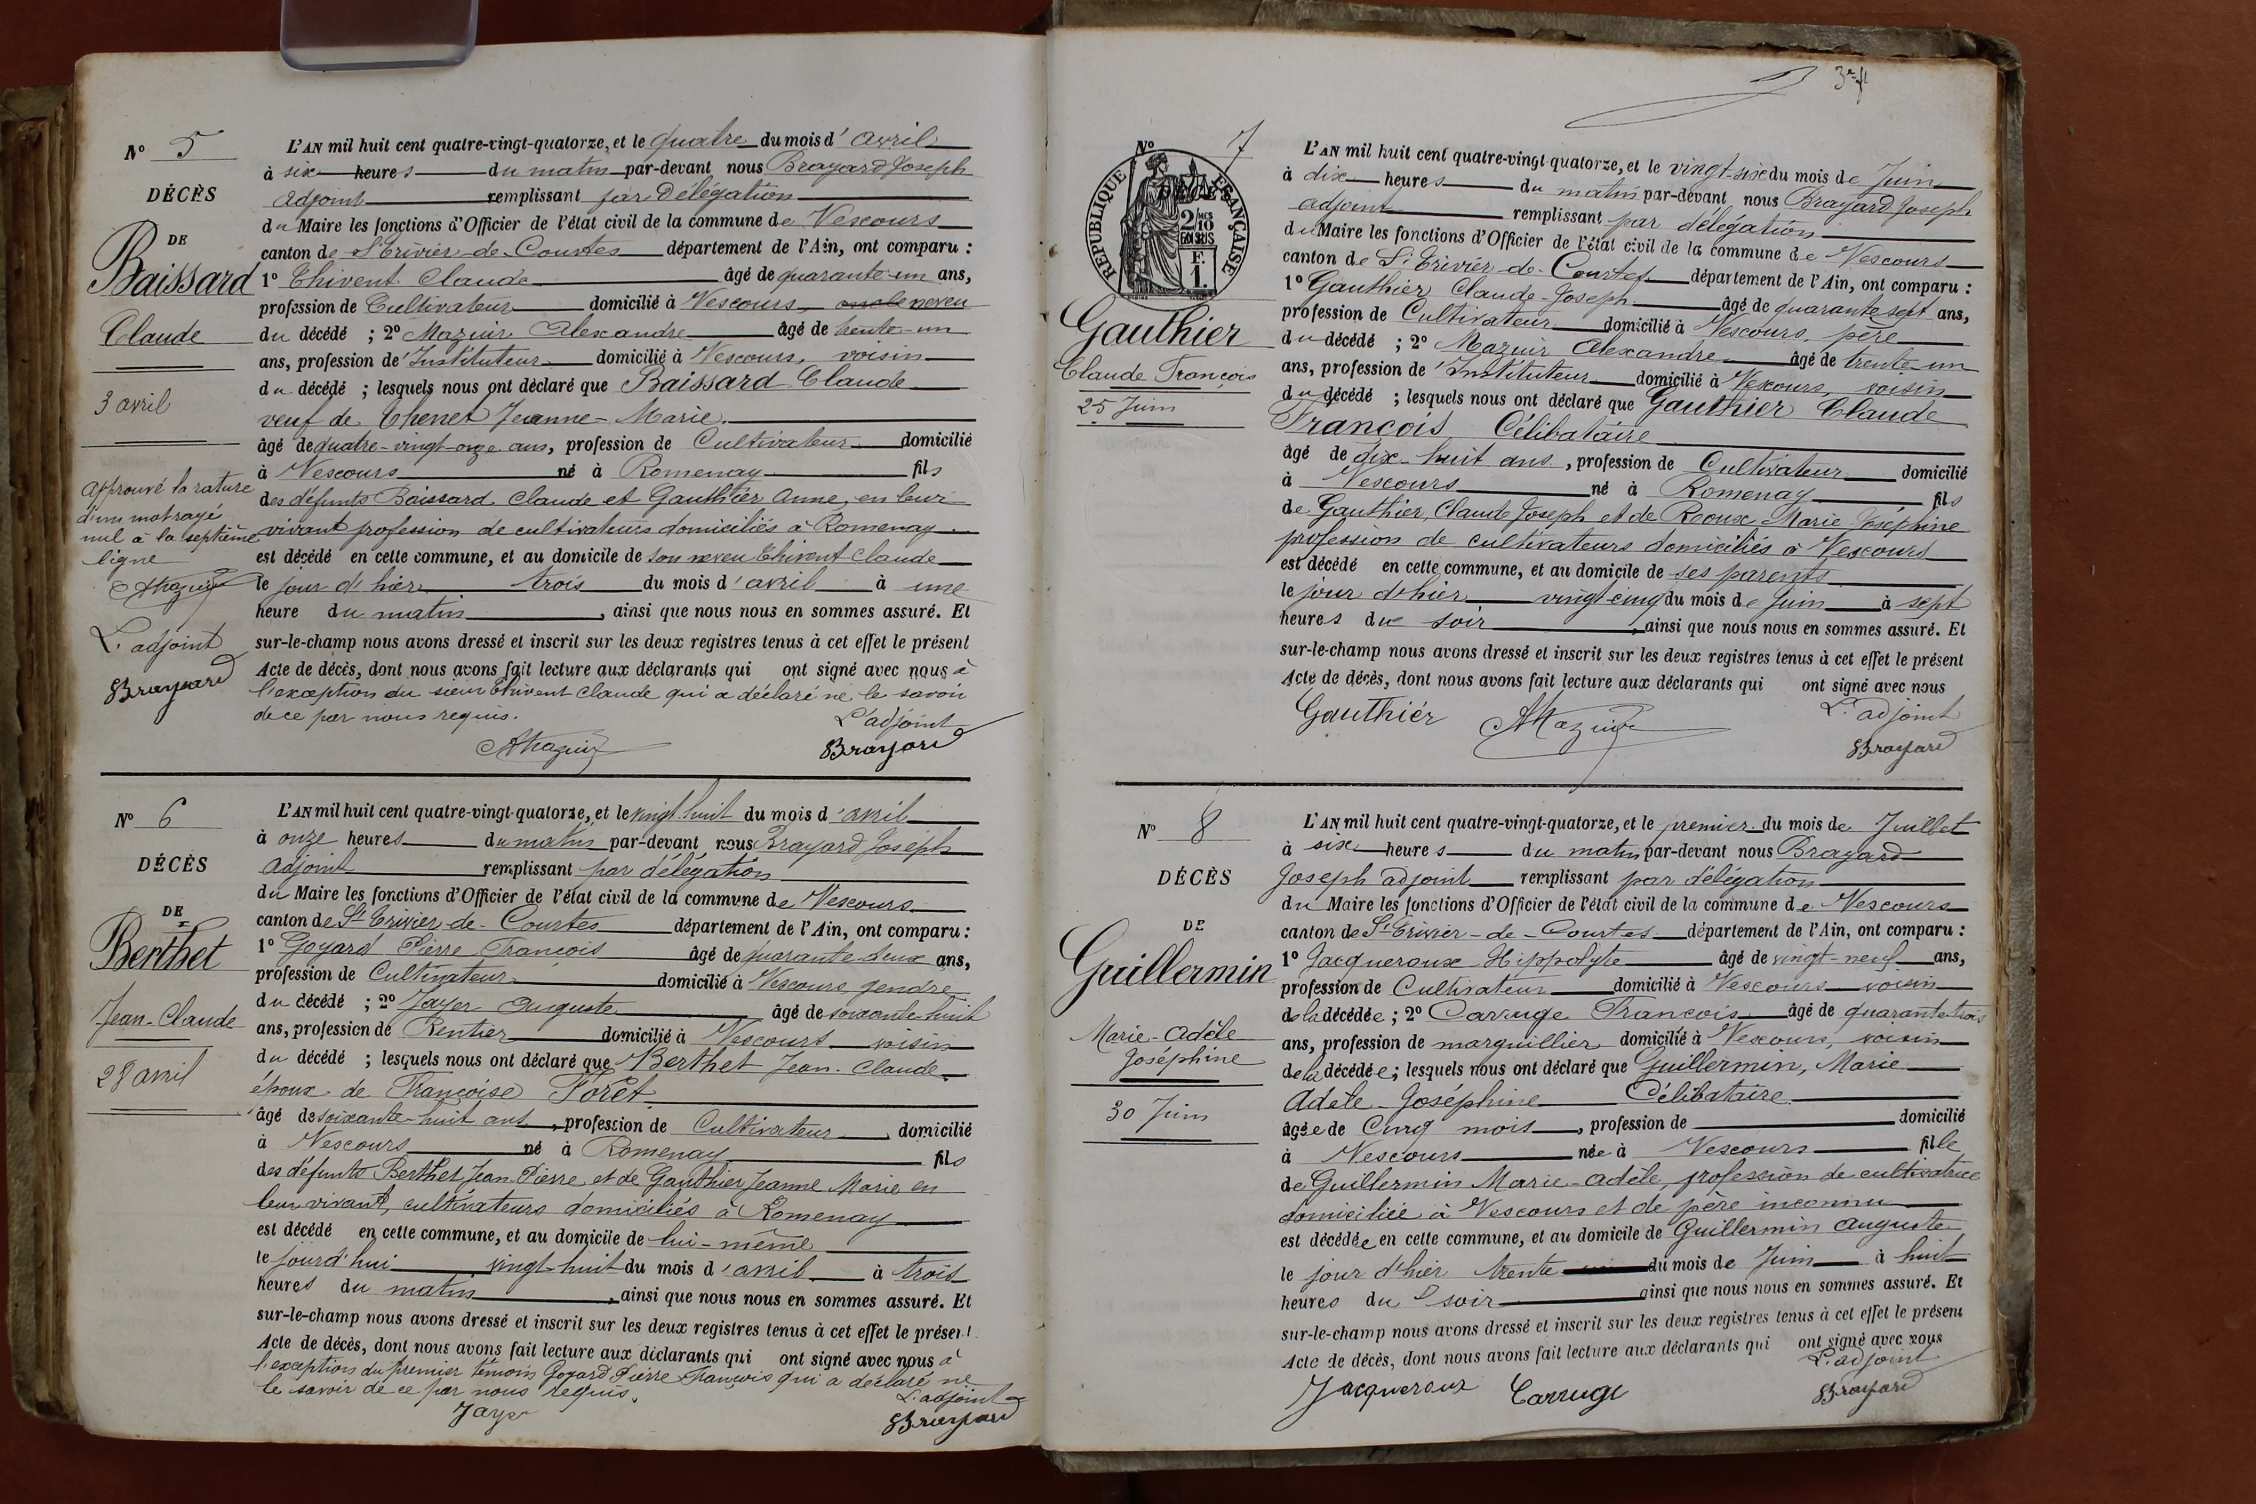 N° 5
DÉCÈS
DE
Baissard
Claude
3 avril
approuvé la rature
d'un mot rayé
nul à la septième
ligne
AMazuir
L'adjoint
Brayard
L'AN mil huit cent quatre-vingt-quatorze, et le quatre du mois d'avril
à six heures du matin par-devant nous Brayard Joseph
adjoint remplissant par délégation
du Maire les fonctions d'Officier de l'état civil de la commune de Vescours
canton de St Trivier-de-Courtes département de l'Ain, ont comparu :
1° Thivent Claude âgé de quarante-un ans,
profession de Cultivateur domicilié à Vescours, oncle neveu
du décédé ; 2° Mazuir Alexandre âgé de trente-un
ans, profession de Instituteur domicilié à Vescours, voisin
du décédé ; lesquels nous ont déclaré que Baissard Claude
veuf de Thenet Jeanne-Marie
âgé de quatre-vingt-onze ans, profession de Cultivateur domicilié
à Vescours né à Romenay fils
des défunts Baissard Claude et Gauthier Anne, en leur
vivant profession de cultivateurs domiciliés à Romenay
est décédé en cette commune, et au domicile de son neveu Thivent Claude
le jour d'hier trois du mois d'avril à une
heure du matin, ainsi que nous nous en sommes assuré. Et
sur-le-champ nous avons dressé et inscrit sur les deux registres tenus à cet effet le présent
Acte de décès, dont nous avons fait lecture aux déclarants qui ont signé avec nous à
l'exception du sieur Thivent Claude qui a déclaré ne le savoir
de ce par nous requis.
L'adjoint
AMazuir Brayard
N° 6
DÉCÈS
DE
Berthet
Jean-Claude
28 avril
L'AN mil huit cent quatre-vingt-quatorze, et le vingt-huit du mois d'avril
à onze heures du matin par-devant nous Brayard Joseph
adjoint remplissant par délégation
du Maire les fonctions d'Officier de l'état civil de la commune de Vescours
canton de St Trivier-de-Courtes département de l'Ain, ont comparu :
1° Goyard Pierre François âgé de quarante-deux ans,
profession de Cultivateur domicilié à Vescours, gendre
du décédé ; 2° Jayer Auguste âgé de soixante-huit
ans, profession de Rentier domicilié à Vescours voisin
du décédé ; lesquels nous ont déclaré que Berthet Jean-Claude
époux de Françoise Forêt
âgé de soixante-huit ans, profession de Cultivateur, domicilié
à Vescours né à Romenay fils
des défunts Berthet Jean-Pierre et de Gauthier Jeanne Marie en
leur vivant, cultivateurs domiciliés à Romenay
est décédé en cette commune, et au domicile de lui-même
le jourd'hui vingt-huit du mois d'avril à trois
heures du matin, ainsi que nous nous en sommes assuré. Et
sur-le-champ nous avons dressé et inscrit sur les deux registres tenus à cet effet le présent
Acte de décès, dont nous avons fait lecture aux déclarants qui ont signé avec nous à
l'exception du premier témoin Goyard Pierre François qui a déclaré ne
le savoir de ce par nous requis.
L'adjoint
Jayer Brayard
3e f
N° 7
RÉPUBLIQUE FRANÇAISE
2/10
EN SUS
F.
1.
Gauthier
Claude François
25 Juin
L'AN mil huit cent quatre-vingt-quatorze, et le vingt-six du mois de Juin
à dix heures du matin par-devant nous Brayard Joseph
adjoint remplissant par délégation
du Maire les fonctions d'Officier de l'état civil de la commune de Vescours
canton de St Trivier-de-Courtes département de l'Ain, ont comparu :
1° Gauthier Claude-Joseph âgé de quarante sept ans,
profession de Cultivateur domicilié à Vescours, père
du décédé ; 2° Mazuir Alexandre âgé de trente-un
ans, profession de Instituteur domicilié à Vescours, voisin
du décédé ; lesquels nous ont déclaré que Gauthier Claude
François Célibataire
âgé de dix-huit ans, profession de Cultivateur domicilié
à Vescours né à Romenay fils
de Gauthier, Claude Joseph et de Reoux Marie Joséphine
profession de cultivateurs domiciliés à Vescours
est décédé en cette commune, et au domicile de ses parents
le jour d'hier vingt-cinq du mois de Juin à sept
heures du soir, ainsi que nous nous en sommes assuré. Et
sur-le-champ nous avons dressé et inscrit sur les deux registres tenus à cet effet le présent
Acte de décès, dont nous avons fait lecture aux déclarants qui ont signé avec nous
L'adjoint
Gauthier AMazuir Brayard
N° 8
DÉCÈS
DE
Guillermin
Marie-Adèle
Joséphine
30 Juin
L'AN mil huit cent quatre-vingt-quatorze, et le premier du mois de Juillet
à six heures du matin par-devant nous Brayard
Joseph adjoint remplissant par délégation
du Maire les fonctions d'Officier de l'état civil de la commune de Vescours
canton de St Trivier-de-Courtes département de l'Ain, ont comparu :
1° Jacqueroux Hippolyte âgé de vingt-neuf ans,
profession de Cultivateur domicilié à Vescours voisin
de la décédée ; 2° Carruge François âgé de quarante-trois
ans, profession de marguillier domicilié à Vescours, voisin
de la décédée ; lesquels nous ont déclaré que Guillermin, Marie
Adèle-Joséphine Célibataire
âgée de Cinq mois, profession de domicilié
à Vescours née à Vescours fille
de Guillermin Marie-Adèle, profession de cultivatrice
domiciliée à Vescours et de père inconnu
est décédée en cette commune, et au domicile de Guillermin Auguste
le jour d'hier trente du mois de Juin à huit
heures du soir ainsi que nous nous en sommes assuré. Et
sur-le-champ nous avons dressé et inscrit sur les deux registres tenus à cet effet le présent
Acte de décès, dont nous avons fait lecture aux déclarants qui ont signé avec nous
L'adjoint
Jacqueroux Carruge Brayard